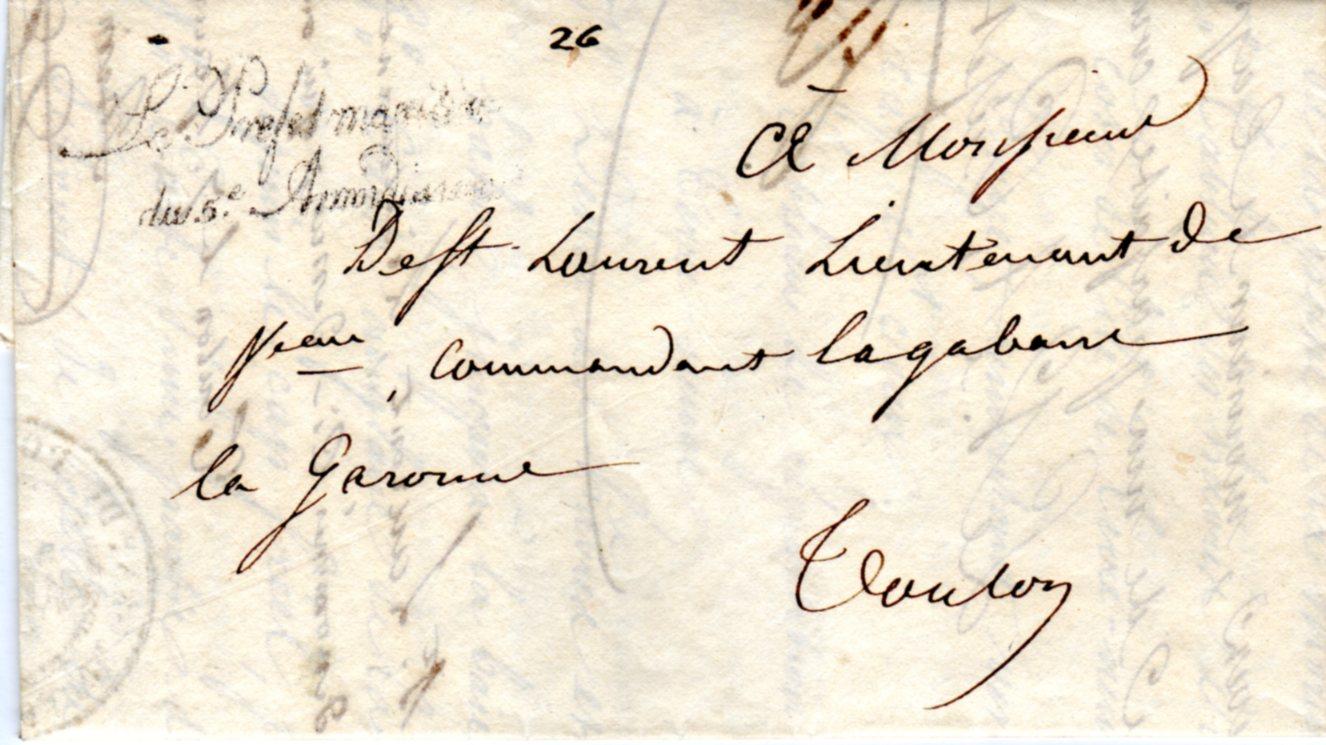 26
Le Préfet maritime
du 5.e Arrondissement
A Monsieur
De St Laurent Lieutenant de
veau, commandant la gabare
la Garonne
Toulon